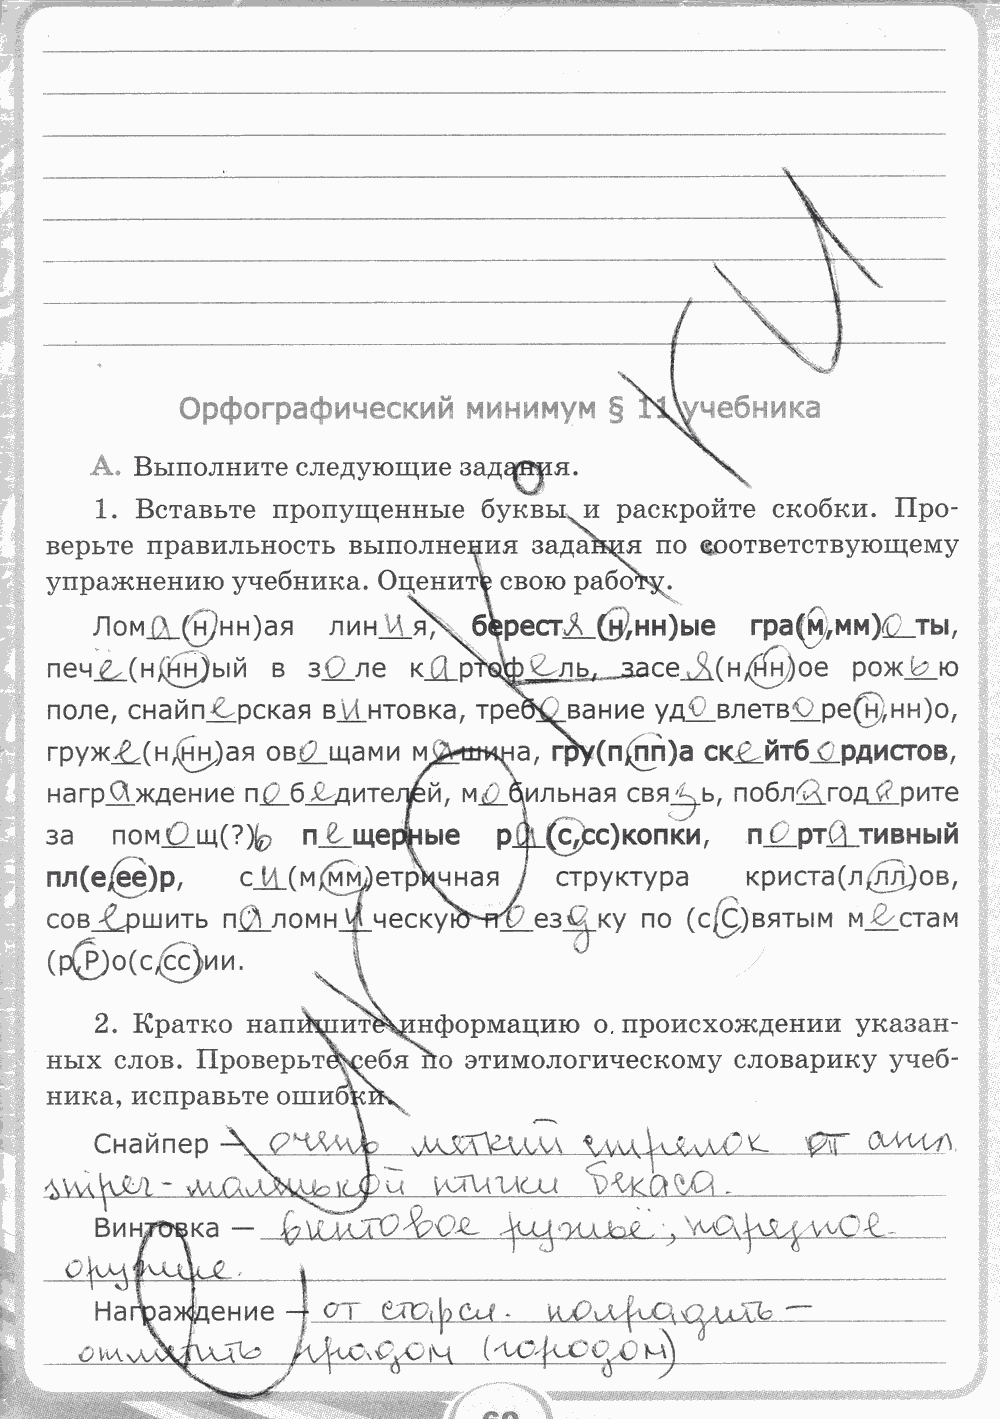 Орфографический минимум § 11 учебника
А. Выполните следующие задания.
1. Вставьте пропущенные буквы и раскройте скобки. Про-
верьте правильность выполнения задания по соответствующему
упражнению учебника. Оцените свою работу.
Лома(н,нн)ая линия, берестя(н,нн)ые гра(м,мм)оты,
печё(н,нн)ый в золе картофель, засея(н,нн)ое рожью
поле, снайперская винтовка, требование удовлетворе(н,нн)о,
груже(н,нн)ая овощами машина, гру(п,пп)а скейтбордистов,
награждение победителей, мобильная связь, поблагодарите
за помощ(?)ь пещерные ра(с,сс)копки, портативный
пл(е,ее)р, си(м,мм)етричная структура криста(л,лл)ов,
совершить паломническую поездку по (с,С)вятым местам
(р,Р)о(с,сс)ии.
2. Кратко напишите информацию о происхождении указан-
ных слов. Проверьте себя по этимологическому словарику учеб-
ника, исправьте ошибки.
Снайпер — очень меткий стрелок от англ.
sniper - маленькой птички бекаса.
Винтовка — винтовое ружьё, нарезное
оружие.
Награждение — от старсл. наградить —
отметить градом (городом)